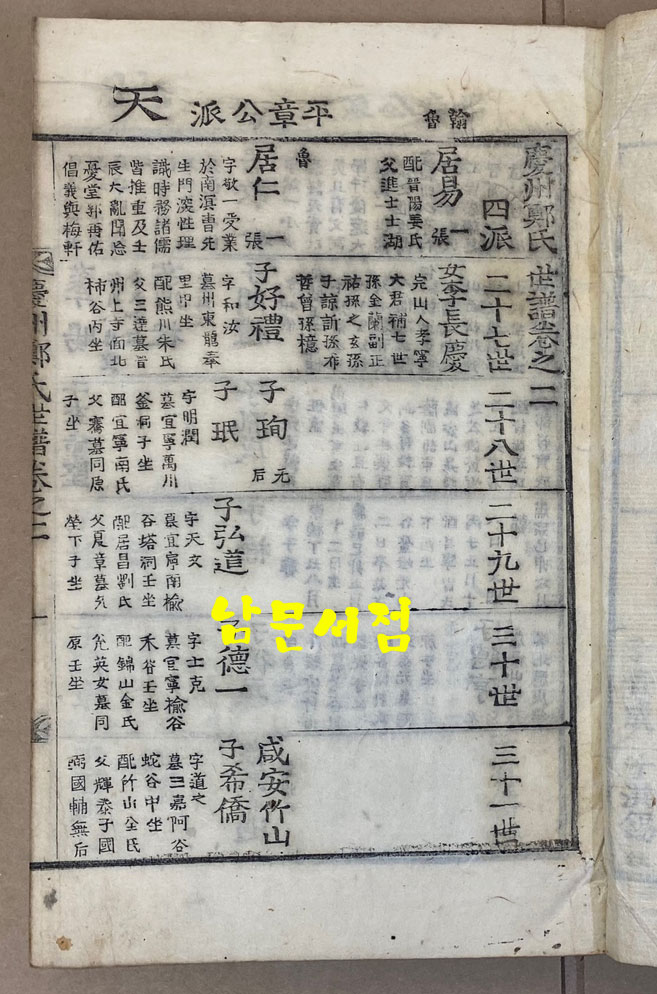 翰魯
平章公派
天
慶州鄭氏世譜卷之二
四派
二十七世
二十八世
二十九世
三十世
三十一世
居易 一張
配晉陽姜氏
父進士士湖
魯
居仁 一張
字敬一受業
於南溟曺先
生門深性理
識時務諸儒
皆推重及壬
辰大亂聞忘
憂堂郭再佑
倡義與梅軒
女李長慶
完山人孝寧
大君補七世
孫金蘭副正
祐孫之玄孫
子諒訢孫布
哲曾孫檍
子好禮
字和汝
墓州東龍奉
里甲坐
配熊川朱氏
父三達墓晋
州上寺面北
柿谷丙坐
子珣 无后
子珉
字明潤
墓宜寧萬川
釜桐子坐
配宜寧南氏
父騫墓同原
子坐
子弘道
字天文
墓宜寧南楡
谷塔洞壬坐
配居昌劉氏
父夏章墓先
塋下子坐
子德一
字士克
墓宜寧楡谷
禾谷壬坐
配錦山金氏
英女墓同
原壬坐
咸安竹山
子希僑
字道之
墓三嘉阿谷
蛇谷甲坐
配竹山全氏
父輝泰子國
弼國輔無后
慶州鄭氏世譜卷之二
一
남문서점